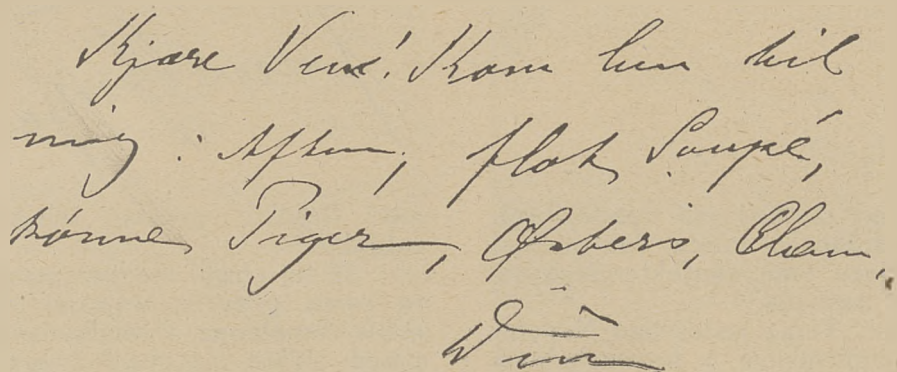 Kjære Ven! Kom kun til
mig i Aften, flot Soupé,
skønne Piger, Østers, Cham„
Din